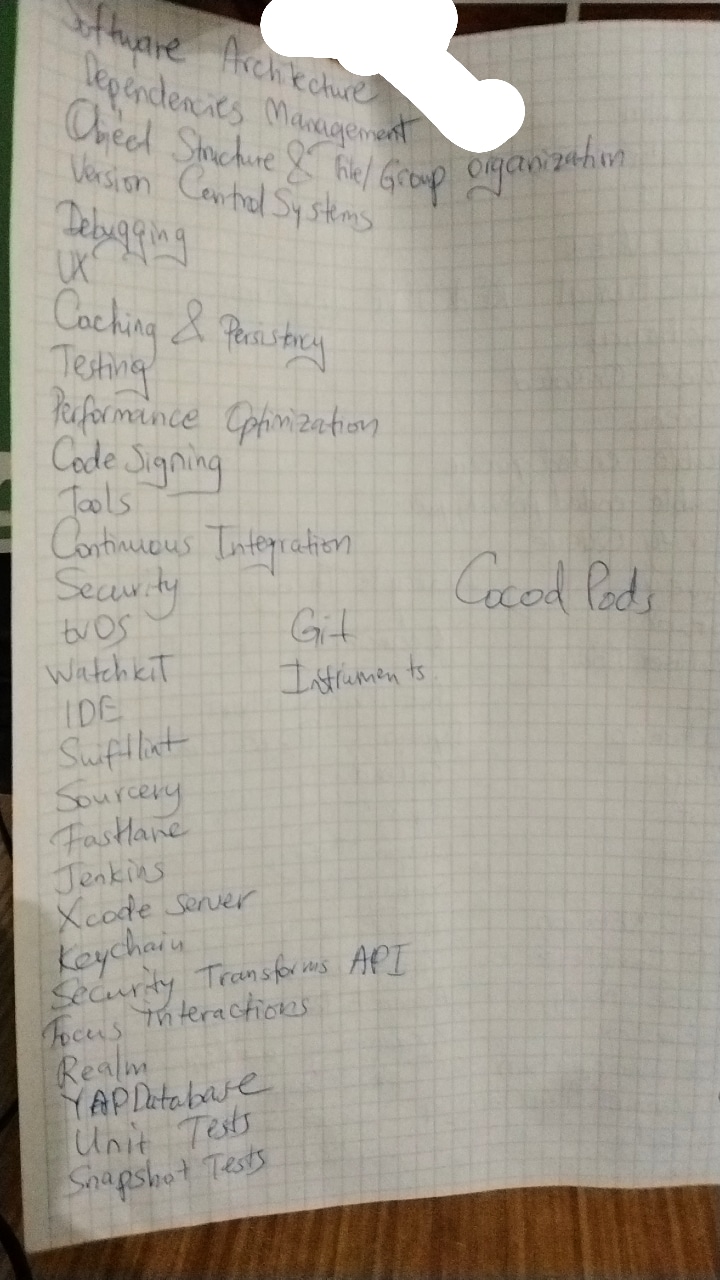 Software Architecture
Dependencies Management
Object Structure & File/Group organization
Version Control Systems
Debugging
UX
Caching & Persistency
Testing
Performance Optimization
Code Signing
Tools
Continuous Integration
Security
Cocod Pods
tvOS Git
Watchkit Instruments
IDE
Swiftlint
Sourcery
Fastlane
Jenkins
Xcode Server
Keychain
Security Transforms API
Focus Interactions
Realm
YAPDatabase
Unit Tests
Snapshot Tests